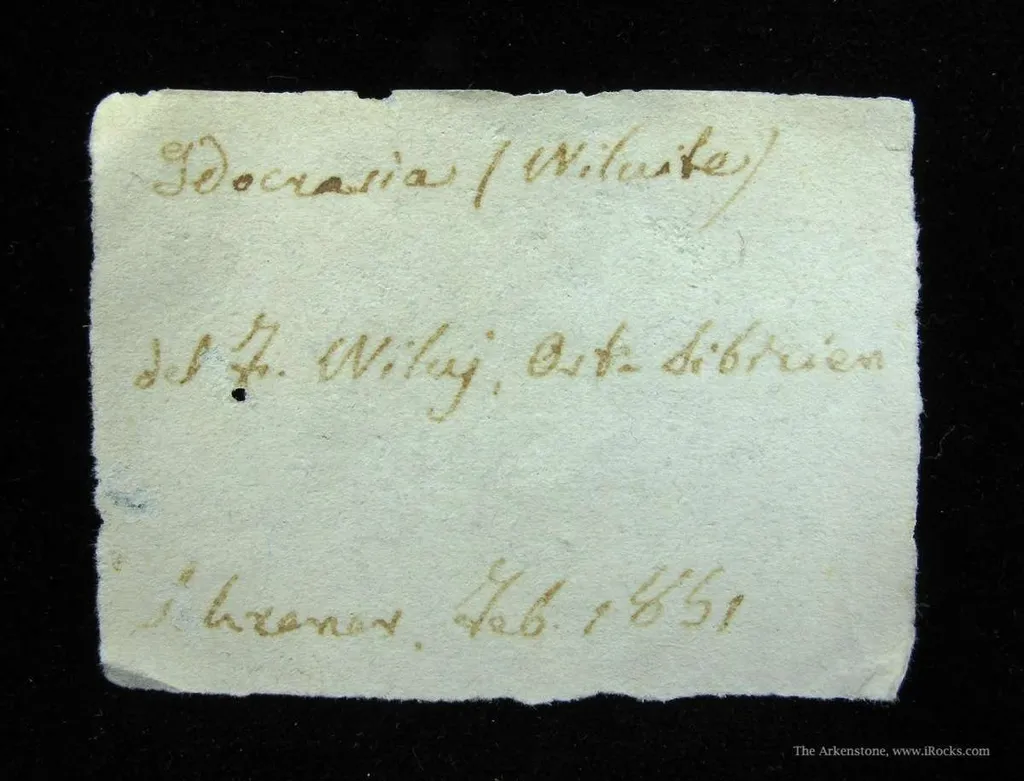 Idocrasia (Wiluite)
del F. Wiluj, Ost-Sibirien
Feb. 1851
The Arkenstone, www.iRocks.com